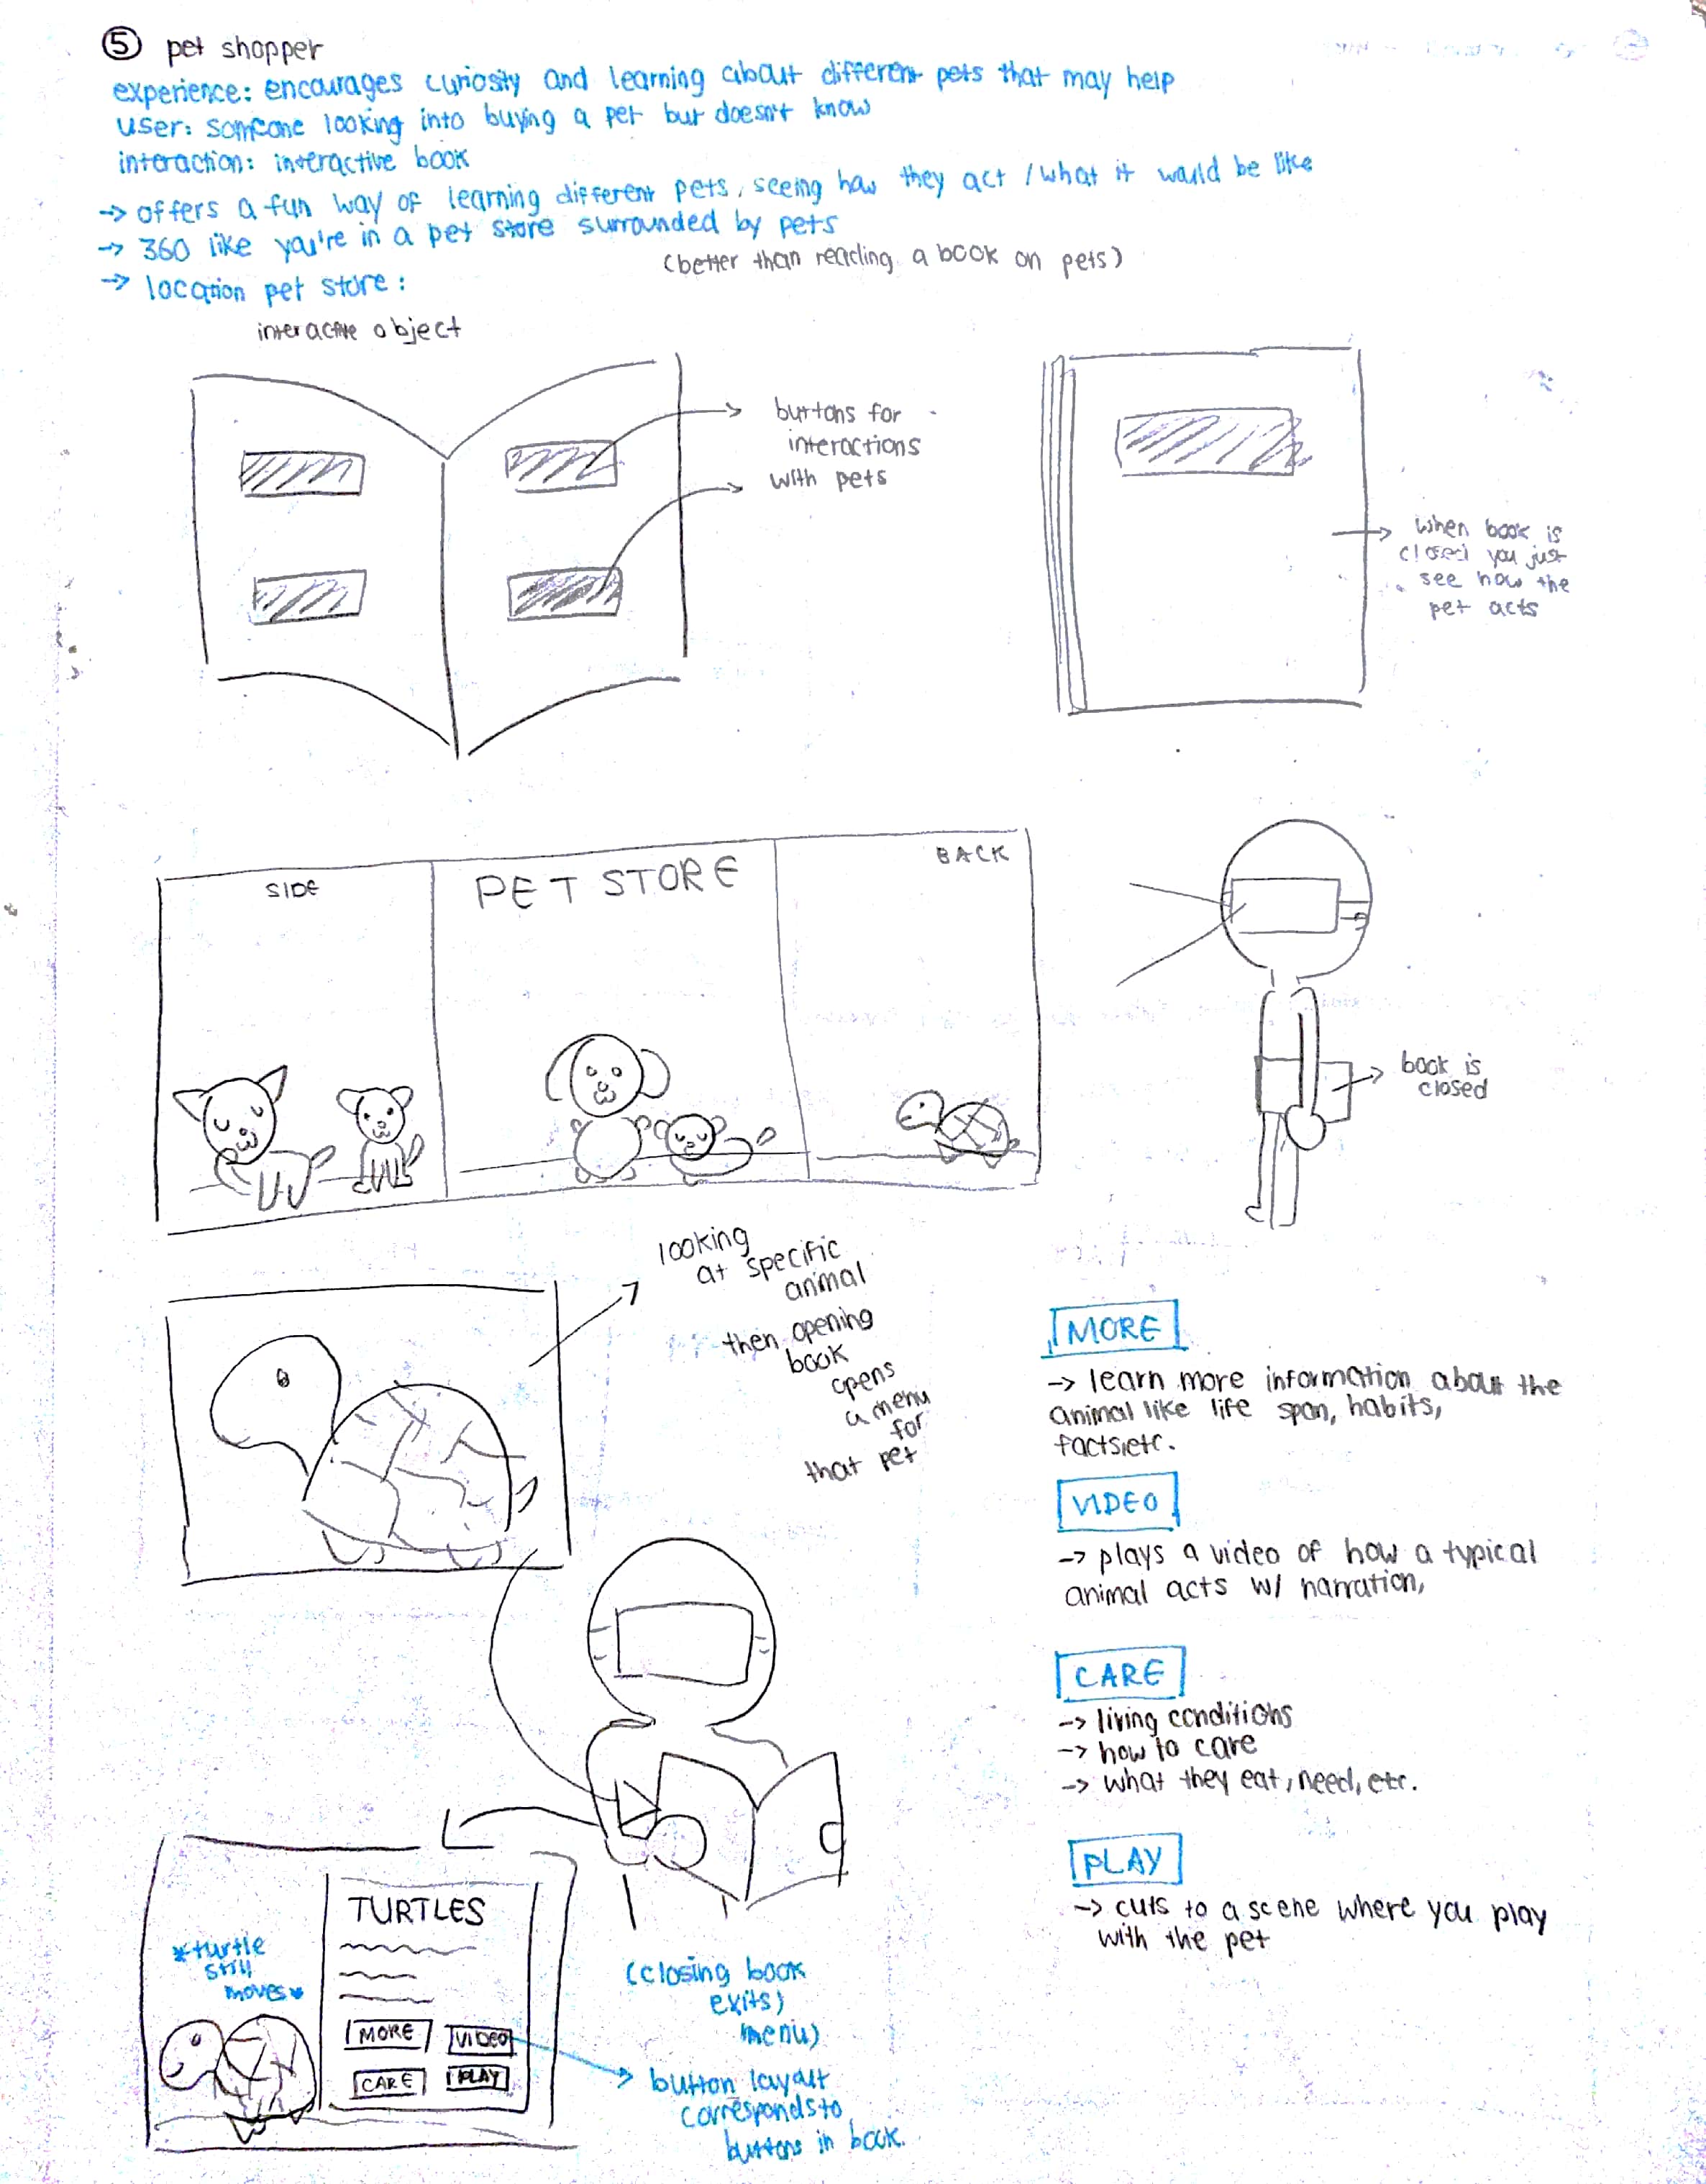 ⑤ pet shopper
experience: encourages curiosity and learning about different pets that may help
user: someone looking into buying a pet but doesn't know
interaction: interactive book
-> offers a fun way of learning different pets, seeing how they act / what it would be like
-> 360 like you're in a pet store surrounded by pets
(better than reading a book on pets)
-> location pet store:
interactive object
buttons for
interactions
with pets
when book is
closed you just
see how the
pet acts
SIDE
PET STORE
BACK
book is
closed
looking
at specific
animal
then opening
book
opens
a menu
for
that pet
MORE
-> learn more information about the
animal like life span, habits,
facts, etc.
VIDEO
-> plays a video of how a typical
animal acts w/ narration,
CARE
-> living conditions
-> how to care
-> what they eat, need, etc.
PLAY
-> cuts to a scene where you play
with the pet
*turtle
still
moves*
TURTLES
MORE VIDEO
CARE PLAY
(closing book
exits)
menu)
button layout
corresponds to
buttons in book.